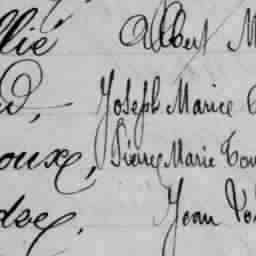 llie Albert M
d, Joseph Marie
oux, Pierre Marie Tou
dec, Jean Vo